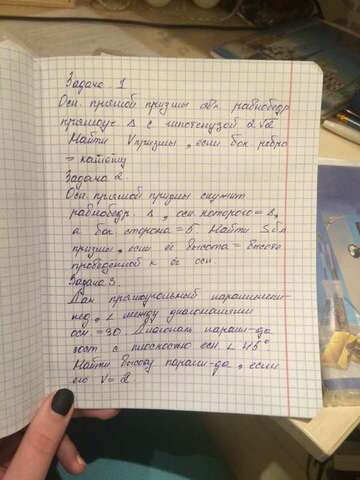 Задача 1
Осн прямой призмы явл равнобедр
прямоуг Δ с гипотенузой 2√2
Найти Vпризмы, если бок ребро
= катету
Задача 2.
Осн прямой призмы служит
равнобедр Δ, осн которого =
а бок сторона = 5 Найти S бп
призмы, если её высота = высоте
проведённой к её осн
Задача 3.
Дан прямоугольный параллелепи-
пед, ∠ между диагоналями
осн = 30. Диагональ паралл-да
сост. с плоскостью осн ∠ 45°
Найти высоту паралл-да, если
его V = 2